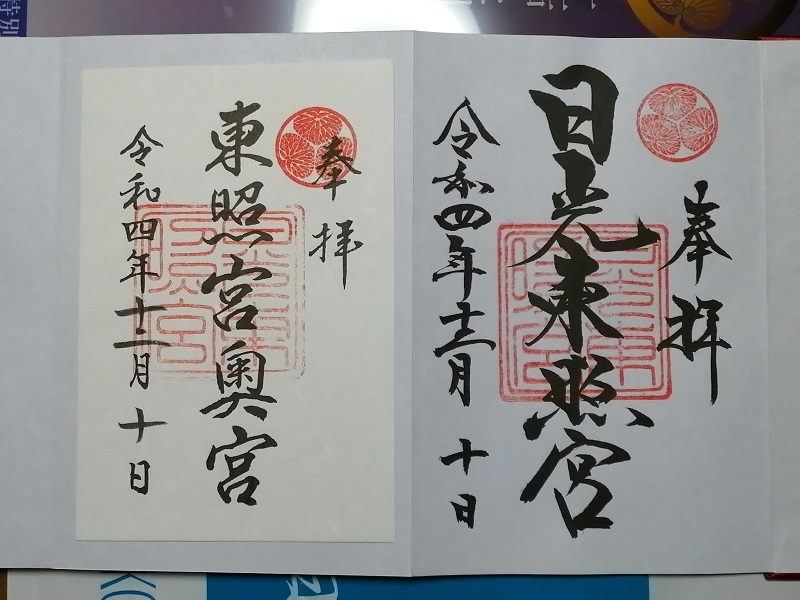 奉拝
日光東照宮
令和四年十二月十日
奉拝
東照宮奥宮
令和四年十二月十日
特別